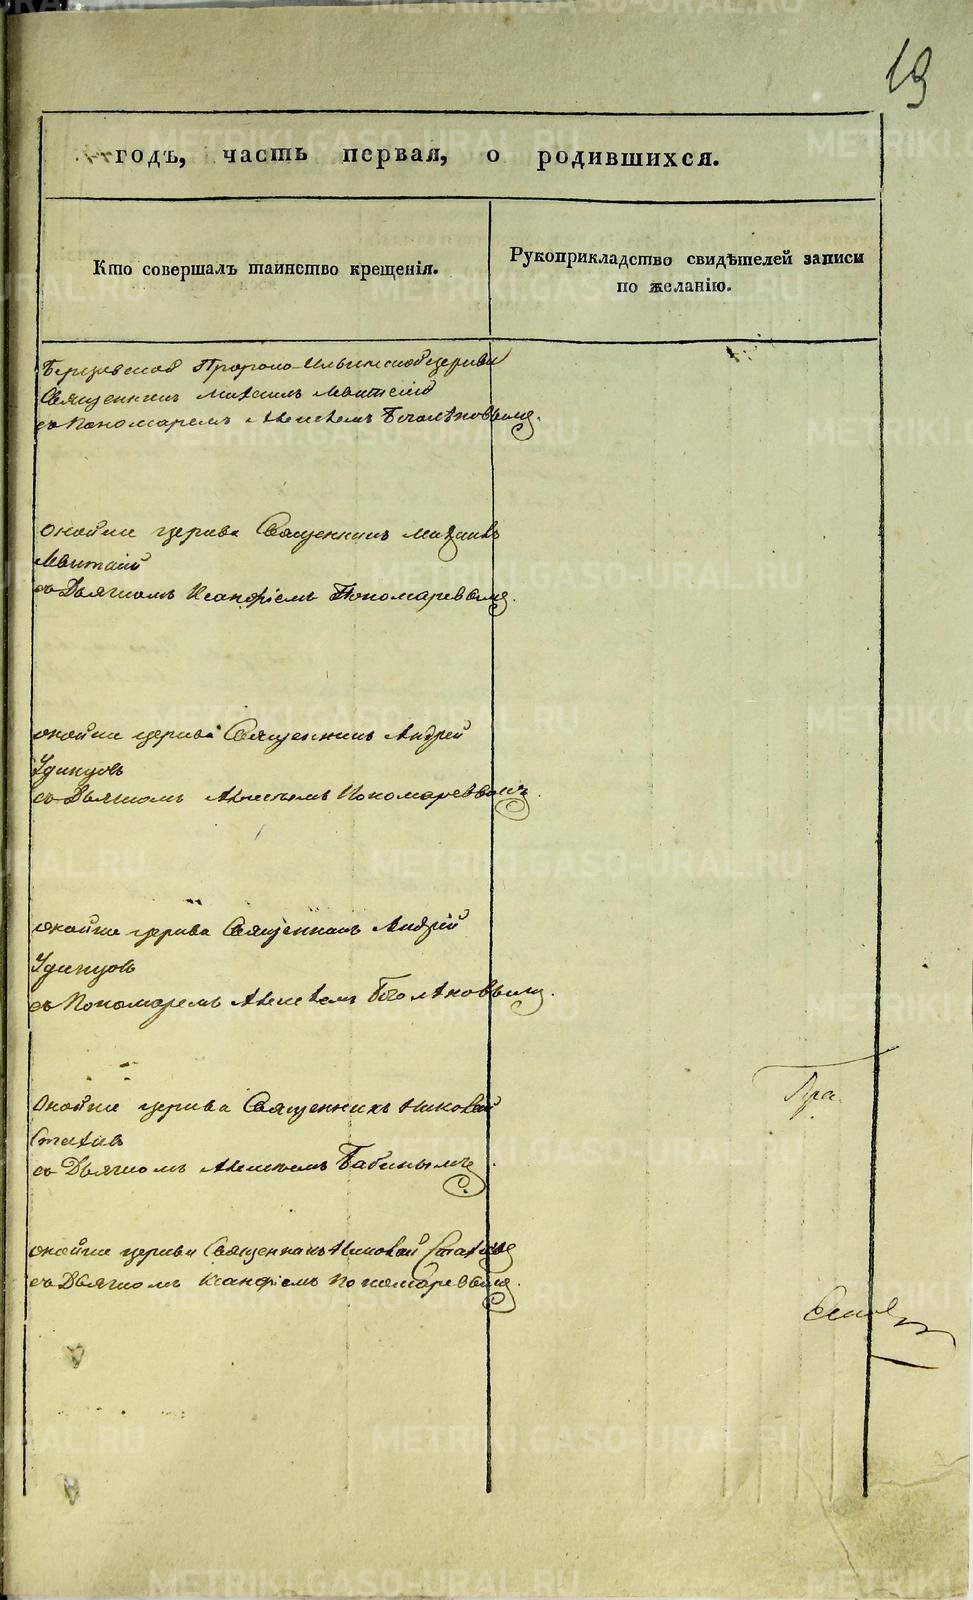 19
годъ, часть первая, о родившихся.
Кто совершалъ таинство крещенія.
Рукоприкладство свидѣтелей записи
по желанію.
Пророко Ильинской церкви
Священникъ Михаилъ
съ Пономаремъ Алексѣемъ
оной же церкви Священникъ Михаилъ
съ Дьячкомъ Ксанфіемъ Пономаревымъ.
оной же церкви Священникъ Андрей
Удинцовъ
съ Дьячкомъ Алексѣемъ Пономаревымъ.
оной же церкви Священникъ Андрей
Удинцовъ
съ Пономаремъ Алексѣемъ
Оной же церкви Священникъ Николай
съ Дьячкомъ Алексѣемъ Бабинымъ
оной же церкви Священникъ Николай
съ Дьячкомъ Ксанфіемъ Пономаревымъ.
METRIKI.GASO-URAL.RU